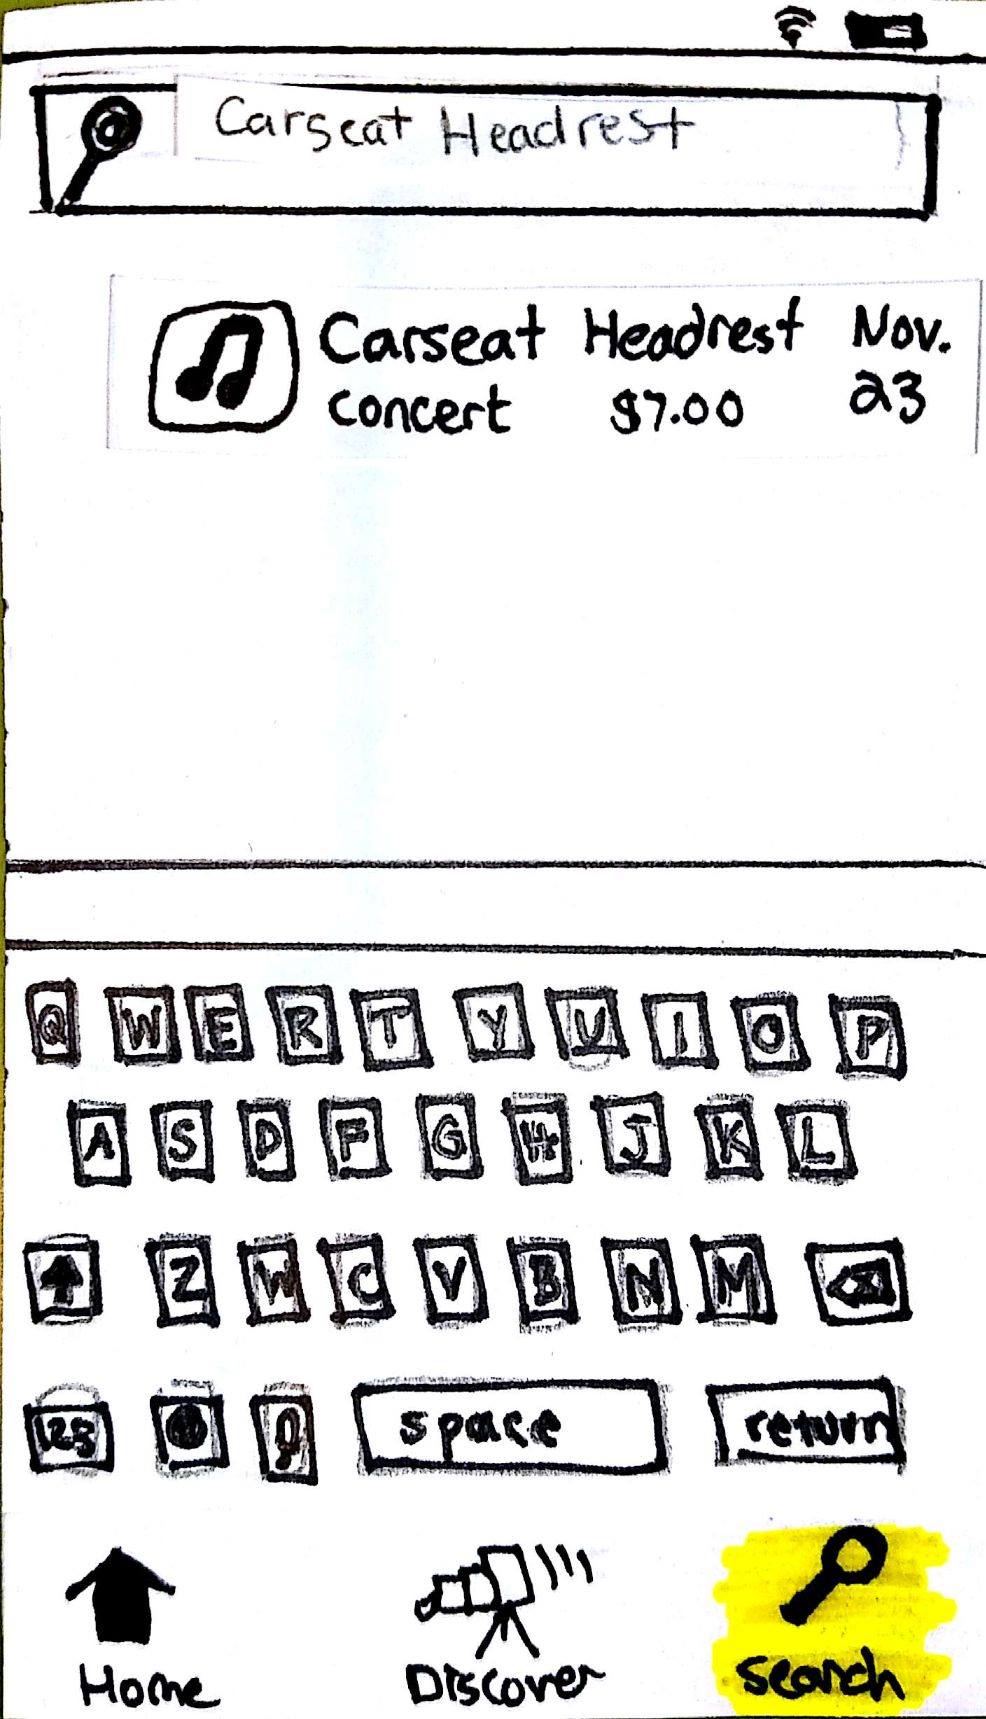 Carseat Headrest
Carseat Headrest Nov.
concert $7.00 23
Q W E R T Y U I O P
A S D F G H J K L
Z W C V B N M
123 space return
Home Discover search